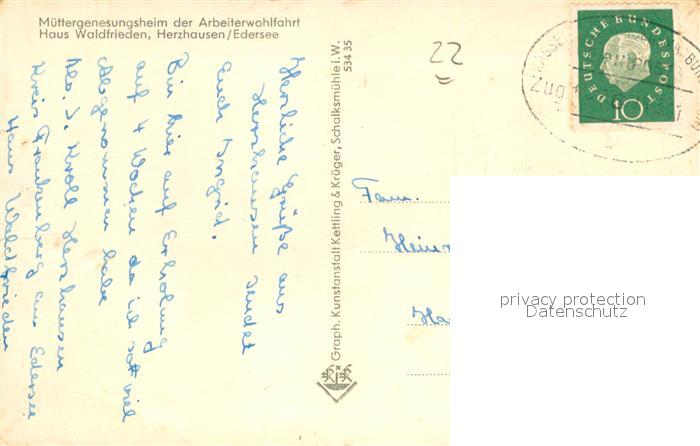 Müttergenesungsheim der Arbeiterwohlfahrt
Haus Waldfrieden, Herzhausen/Edersee
Herzliche Grüße aus
Herzhausen sendet
Euch Ingrid.
Bin hier auf Erholung
auf 4 Wochen da ich so viel
abgenommen habe
Abs. J. Kroll Herzhausen
Kreis Frankenberg am Edersee
Haus Waldfrieden
Graph. Kunstanstalt Kettling & Krüger, Schalksmühle i.W.
534 35
22
DEUTSCHE BUNDESPOST
10
KASSEL
ZUG
Fam.
Hein
Ha
privacy protection
Datenschutz